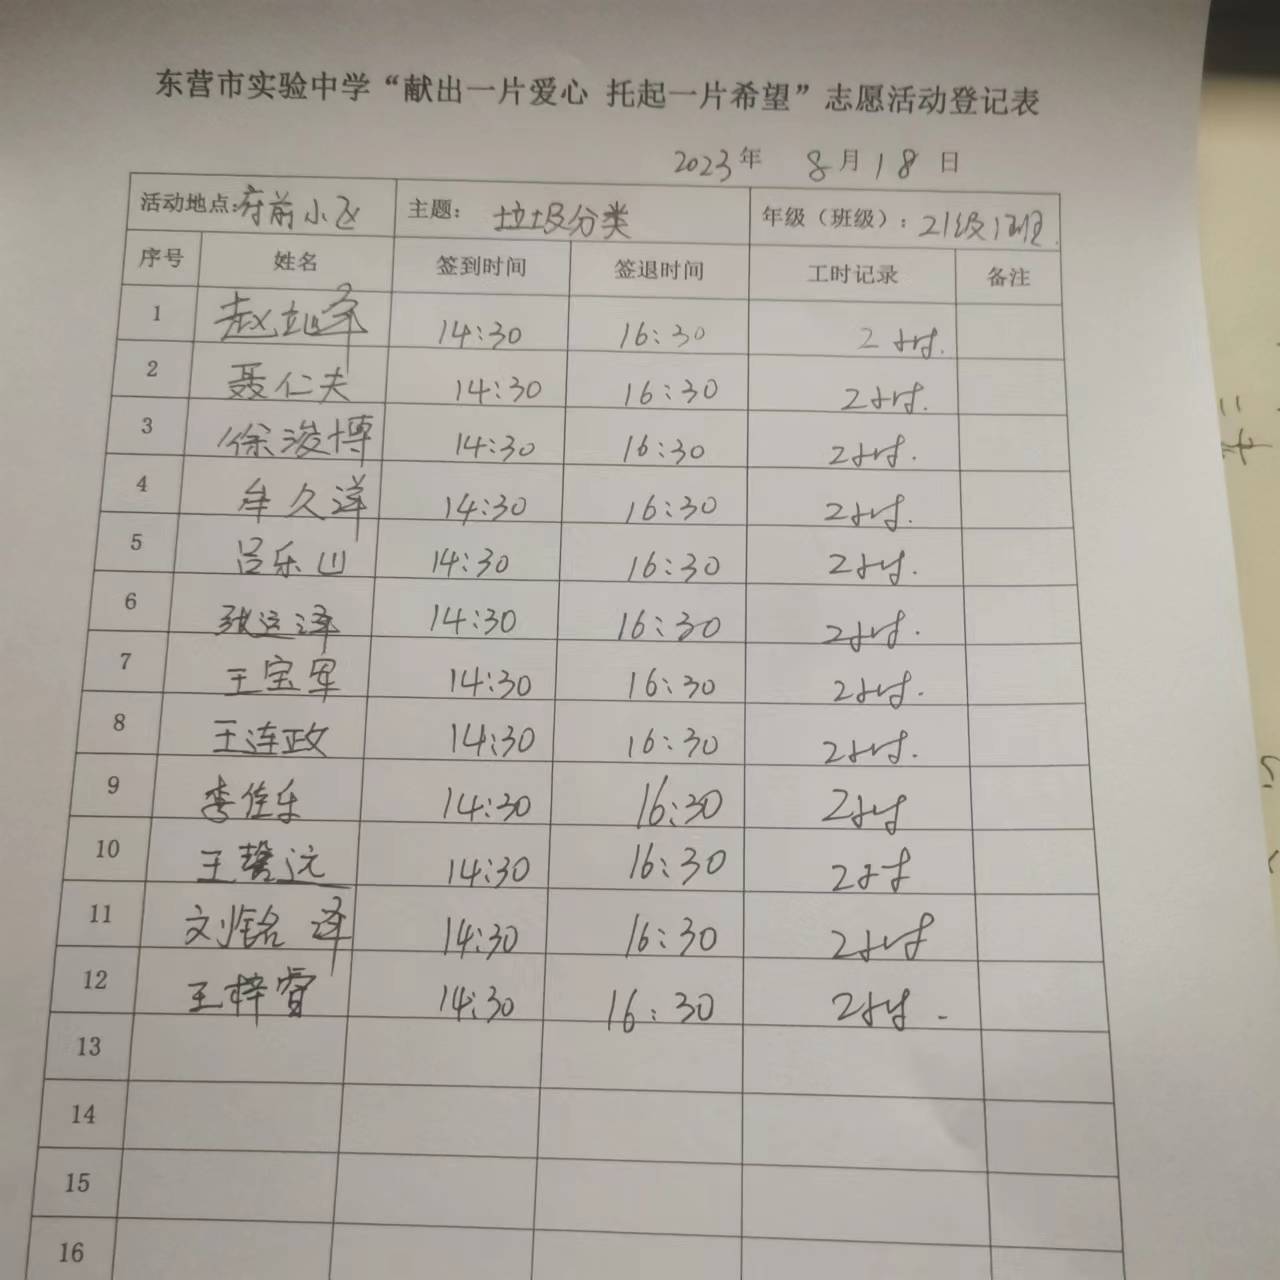 东营市实验中学“献出一片爱心 托起一片希望”志愿活动登记表
2023年 8月18日
活动地点:府前小区 主题: 垃圾分类 年级（班级）: 21级1班.
序号 姓名 签到时间 签退时间 工时记录 备注
1 赵 14:30 16:30 2小时.
2 聂仁夫 14:30 16:30 2小时.
3 徐浚博 14:30 16:30 2小时.
4 牟久洋 14:30 16:30 2小时.
5 吕乐山 14:30 16:30 2小时.
6 张运泽 14:30 16:30 2小时.
7 王宝军 14:30 16:30 2小时.
8 王连政 14:30 16:30 2小时.
9 李佳乐 14:30 16:30 2小时
10 王 远 14:30 16:30 2小时
11 刘铭泽 14:30 16:30 2小时
12 王梓睿 14:30 16:30 2小时.
13
14
15
16